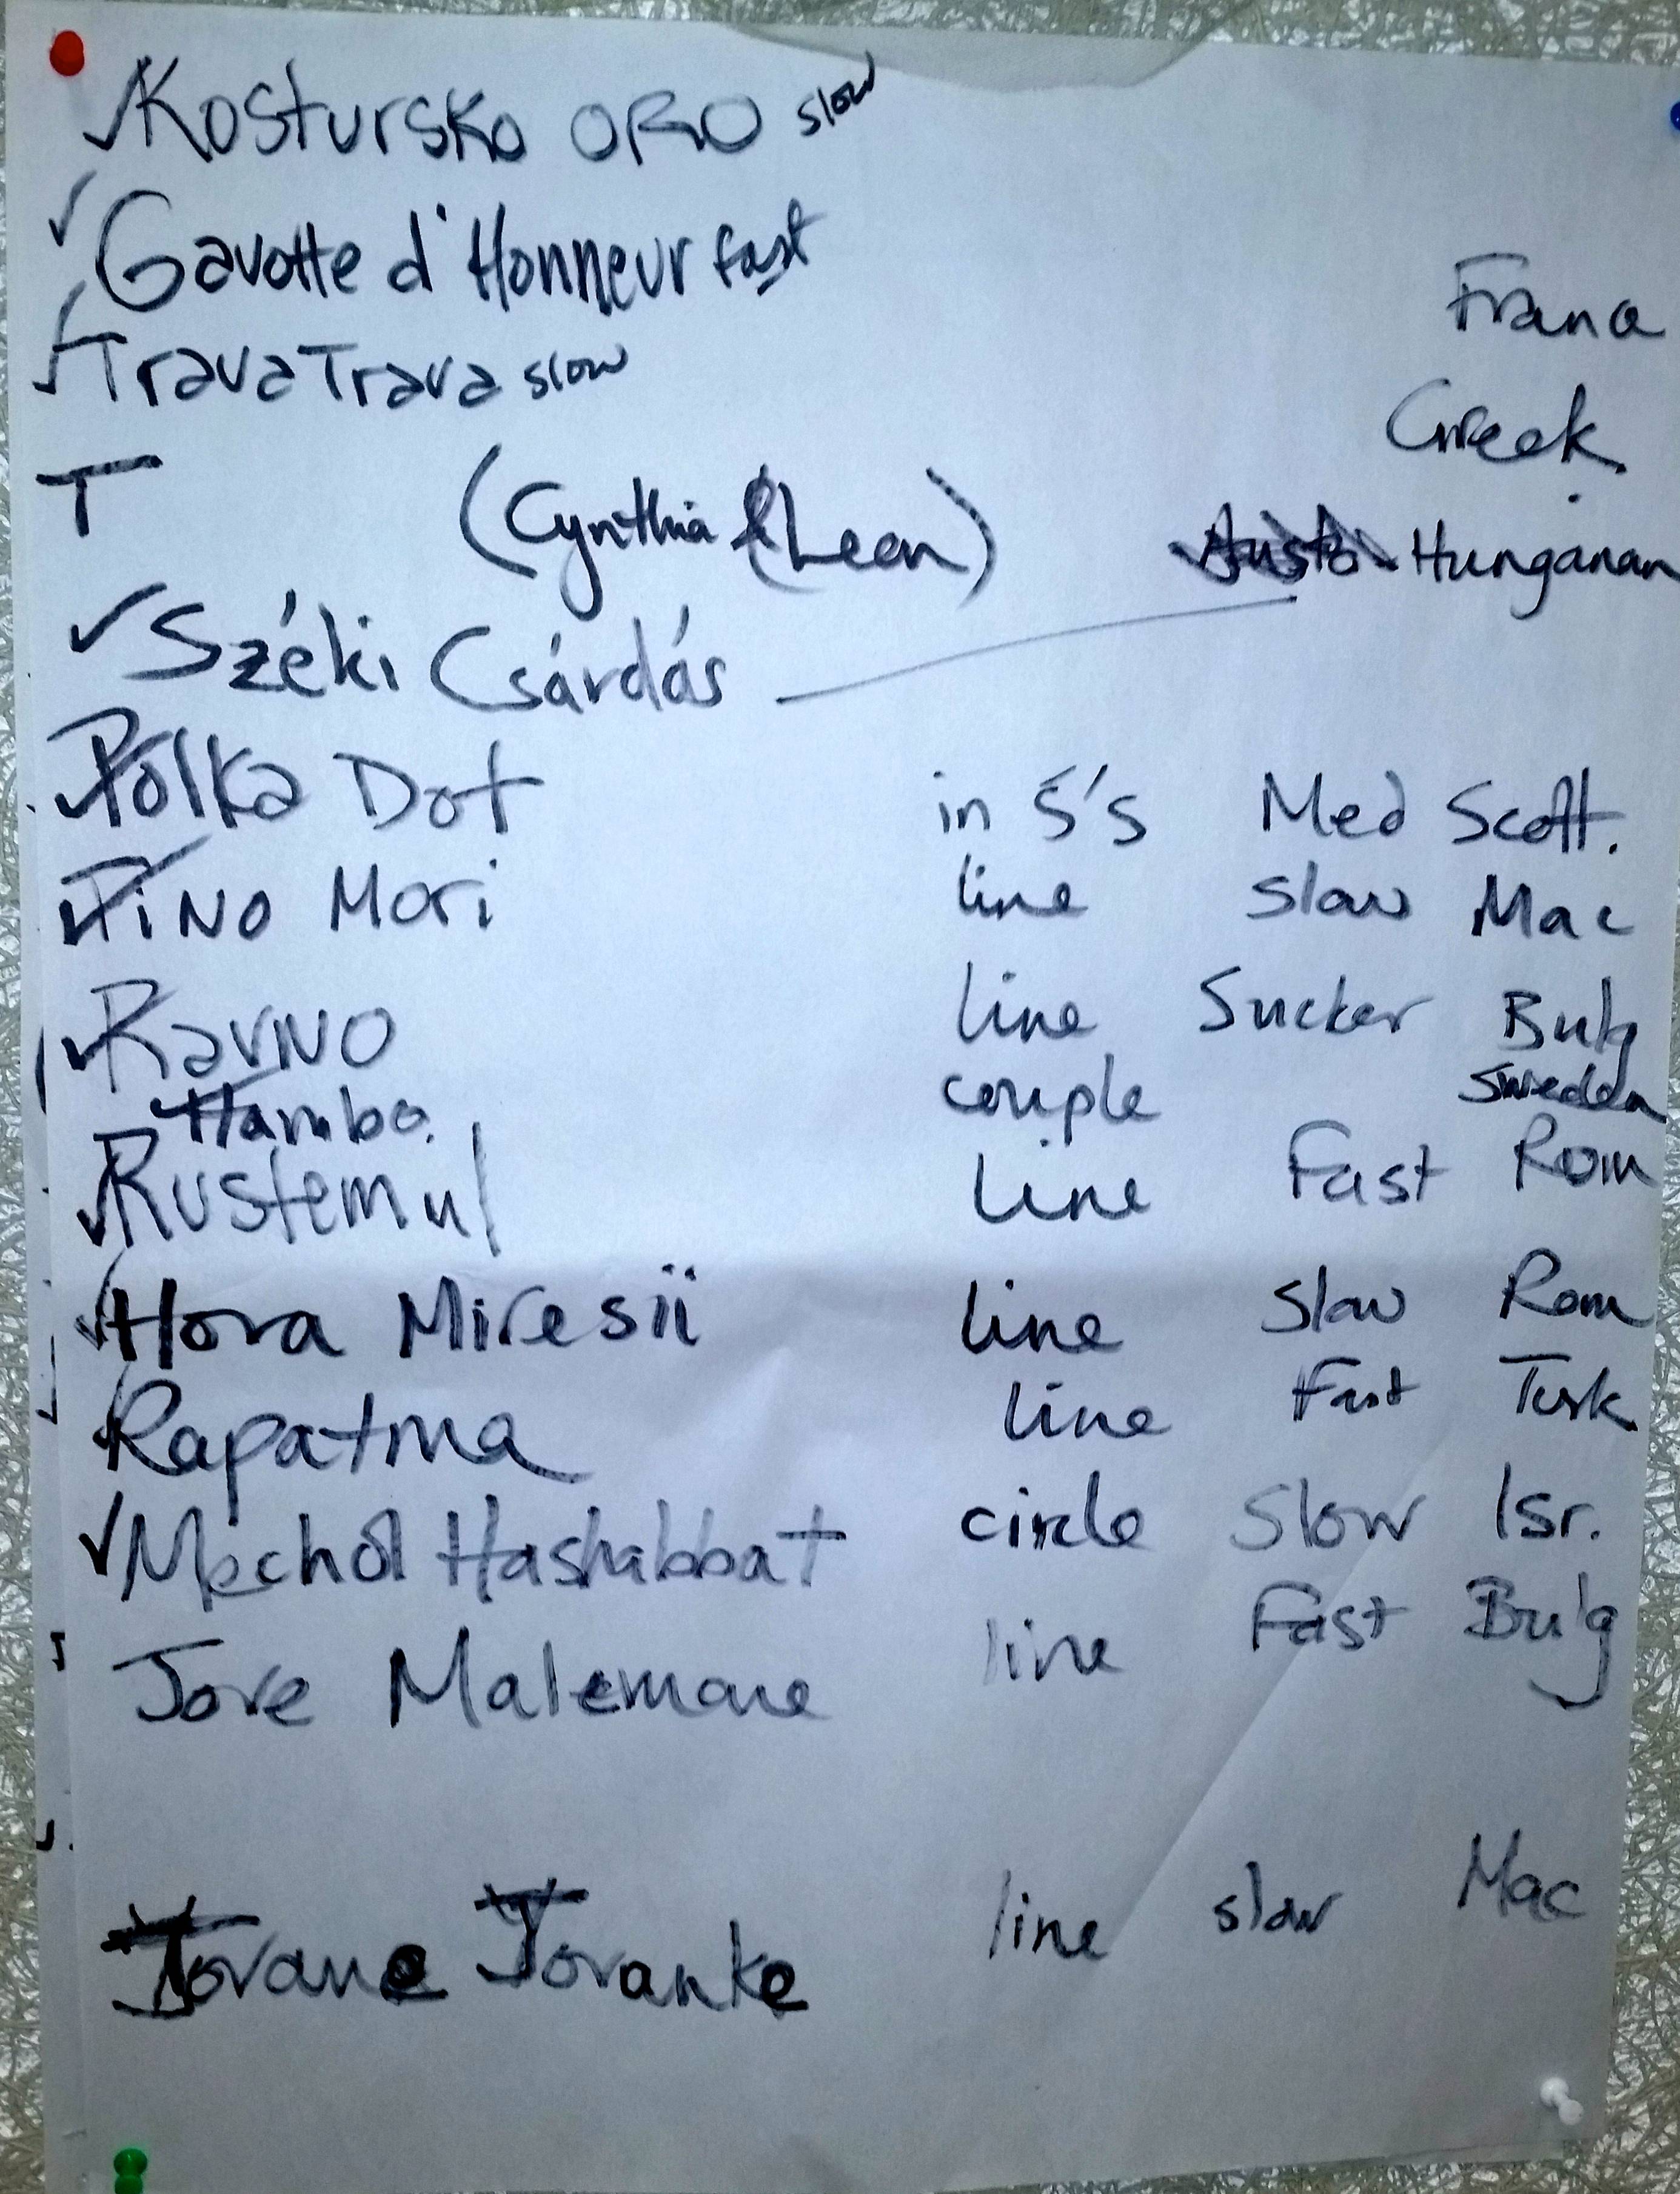 ✓ Kostursko ORO slow
✓ Gavotte d'Honneur fast France
✓ Trava Trava slow Greek
T (Cynthia & Leon) Hungarian
✓ Széki Csárdás
✓ Polka Dot in 5's Med Scott.
✓ Pino Mori line slow Mac
✓ Ravno line Sucker Bulg
Hambo. couple Sweden
✓ Rustemul Line Fast Rom
✓ Hora Miresii line Slow Rom
Rapatma line Fast Turk
✓ Mechol Hashabbat circle Slow Isr.
Jove Malemove line Fast Bulg
Jovane Jovanke line slow Mac